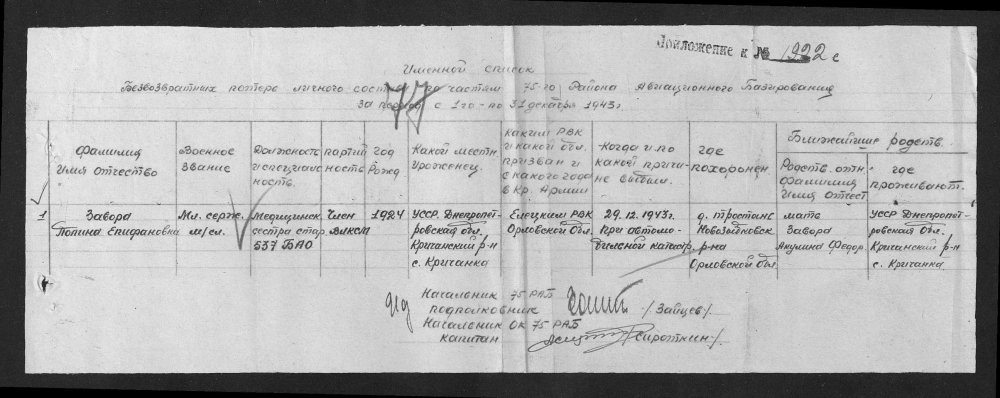 Приложение к № 1922 с
Именной список
Безвозвратных потерь личного состава по частям 75-го Района Авиационного Базирования
за период с 1го - по 31 декабря 1943г
Фамилия
Имя отчество
Военное
звание
Должность
и специаль
ность.
партий
ность
год
рожд
Какой местн.
Уроженец.
каким РВК
и какой обл.
призван и
с какого года
в Кр. Армии
Когда и по
какой причи-
не выбыл.
где
похоронен
Ближайшие родств.
Родств. отн.
Фамилия
Имя отчест
где
проживают.
1
Завора
Полина Епифановка
Мл. серж.
м/сл.
Медицинск
сестра стар.
537 БАО
Член
ВЛКСМ
1924
УССР. Днепропет-
ровская обл.
Кричанский р-н
с. Кричанка
Елецким РВК
Орловской Обл.
29.12.1943г.
При автомо-
бильной катастр.
д. Тростань
Новозыбковск
р-на
Орловской обл
мать
Завора
Акулина Федор.
УССР Днепропет-
ровская обл.
Кричанский р-н
с. Кричанка
Начальник 75 РАБ
подполковник /Зайцев/
Начальник ОК 75 РАБ
капитан /Сироткин/.